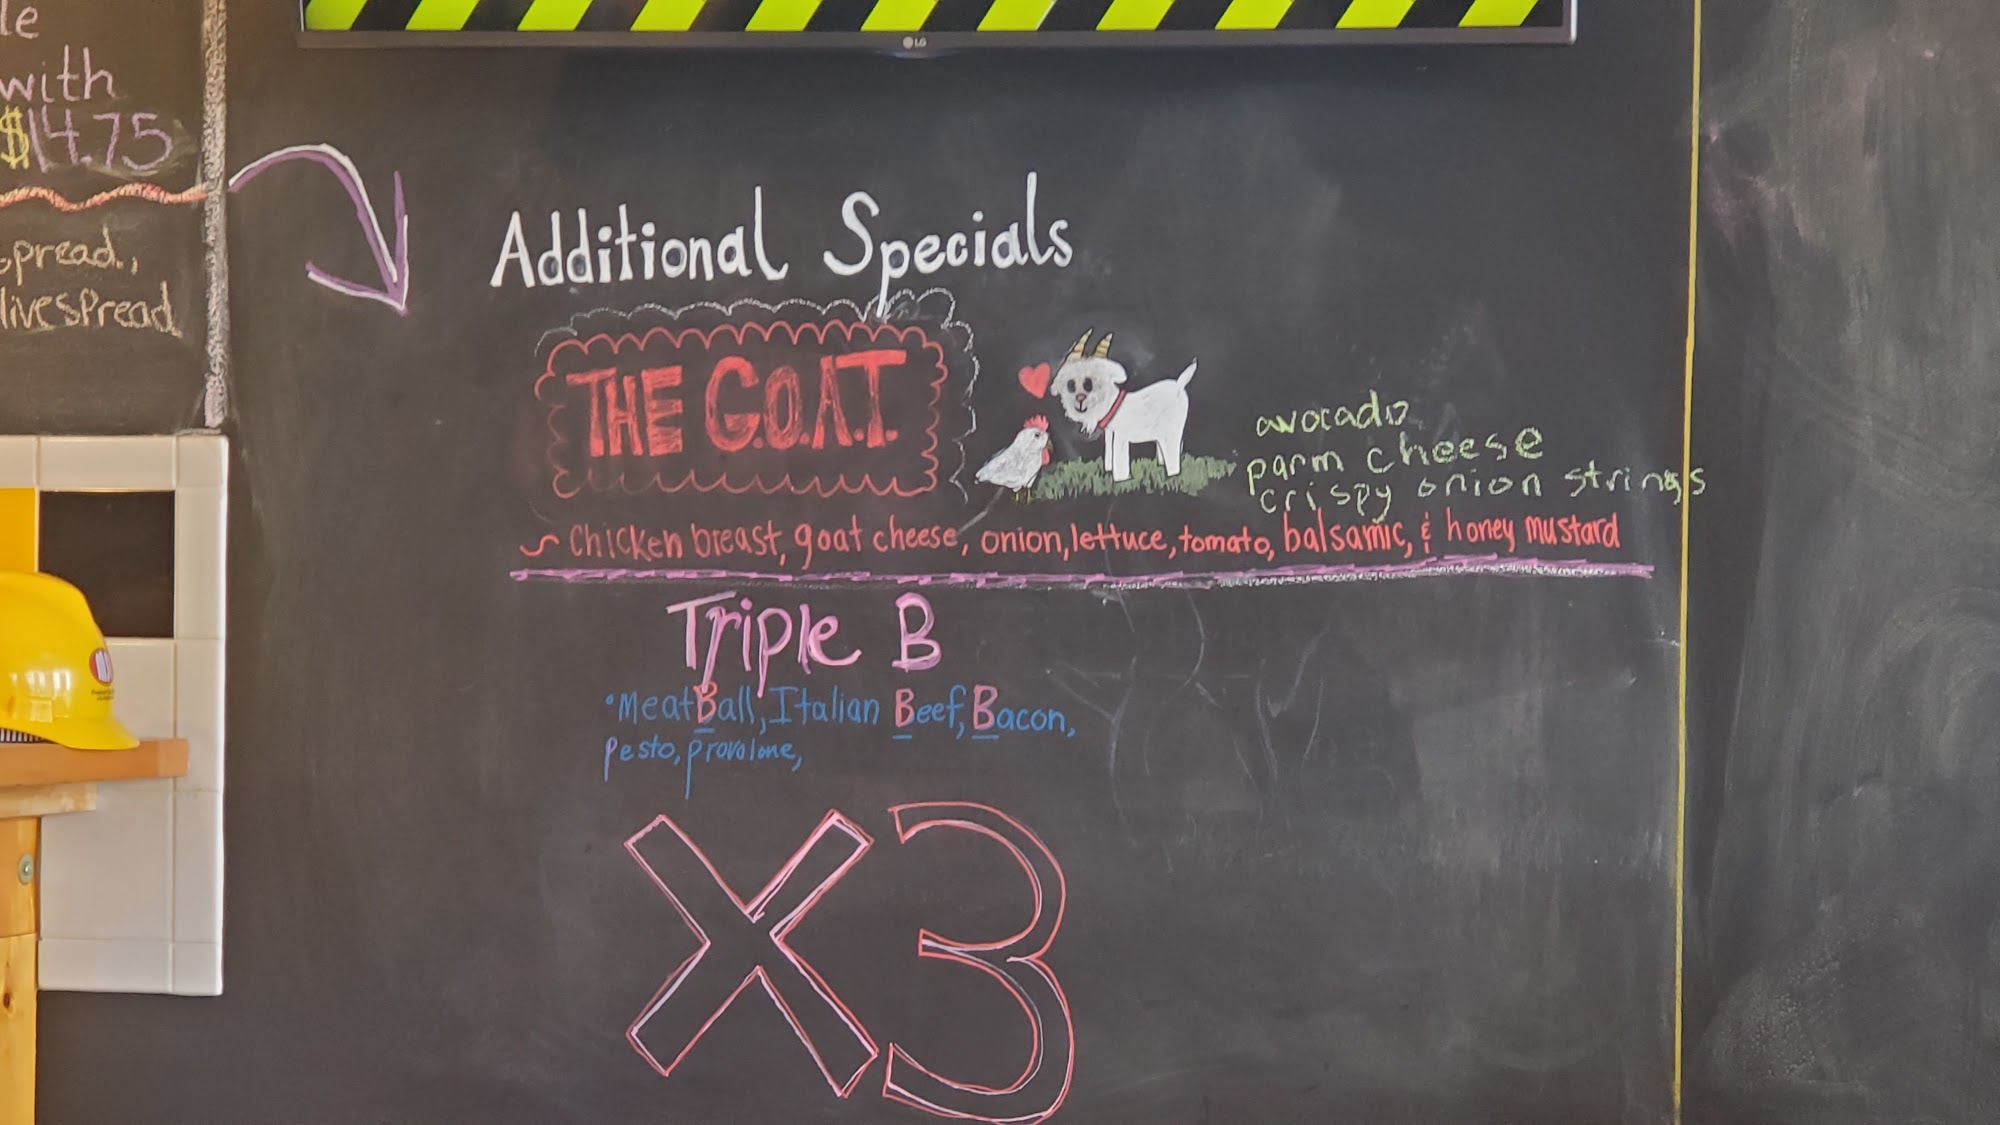 le
with
$14.75
spread.,
livespread
LG
Additional Specials
THE G.O.A.T.
avocado
parm cheese
crispy onion strings
~ Chicken breast, goat cheese, onion, lettuce, tomato, balsamic, & honey mustard
Triple B
• MeatBall, Italian Beef, Bacon,
pesto, provolone,
X3